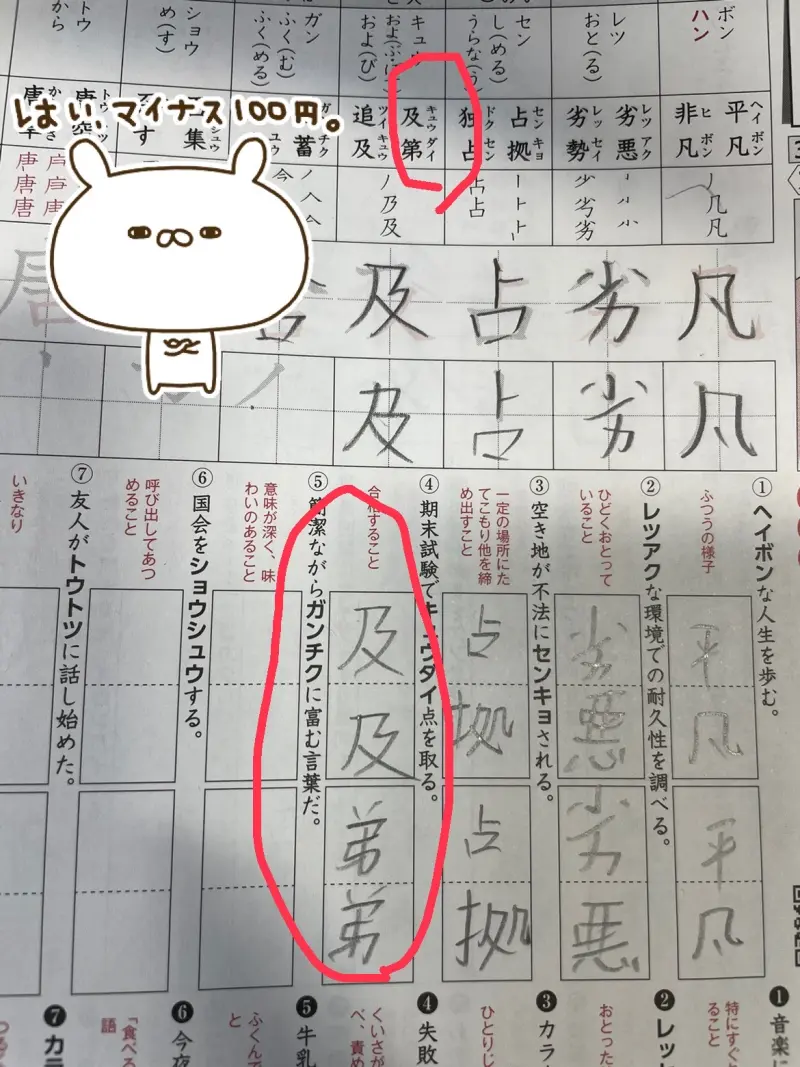 はい、マイナス100円。
ボン
ハン
レツ
おと(る)
セン
し(める)
うらな(う)
キュウ
および(び)
ガン
ふく(む)
ふく(める)
ショウ
め(す)
トウ
から
平凡 ヘイボン
非凡 ヒボン
劣悪 レツアク
劣勢 レッセイ
占拠 センキョ
独占 ドクセン
及第 キュウダイ
追及 ツイキュウ
ノ几凡
占占
ノ乃及
唐唐唐
凡
劣
占
及
凡
劣
占
及
①ヘイボンな人生を歩む。
ふつうの様子
平凡
平凡
②レツアクな環境での耐久性を調べる。
ひどくおとって
いること
劣悪
劣悪
③空き地が不法にセンキョされる。
一定の場所にた
てこもり他を締
め出すこと
占拠
占拠
④期末試験でキュウダイ点を取る。
合格すること
及及
弟弟
⑤簡潔ながらガンチクに富む言葉だ。
意味が深く、味
わいのあること
⑥国会をショウシュウする。
呼び出してあつ
めること
⑦友人がトウトツに話し始めた。
いきなり
❶音楽に
特にすぐ
ること
❷レッ
おとった
❸カラ
ひとりじ
❹失敗
くいさが
べ、責め
❺牛乳
ふくんで
と
❻今夜
「食べる
語
❼カラ